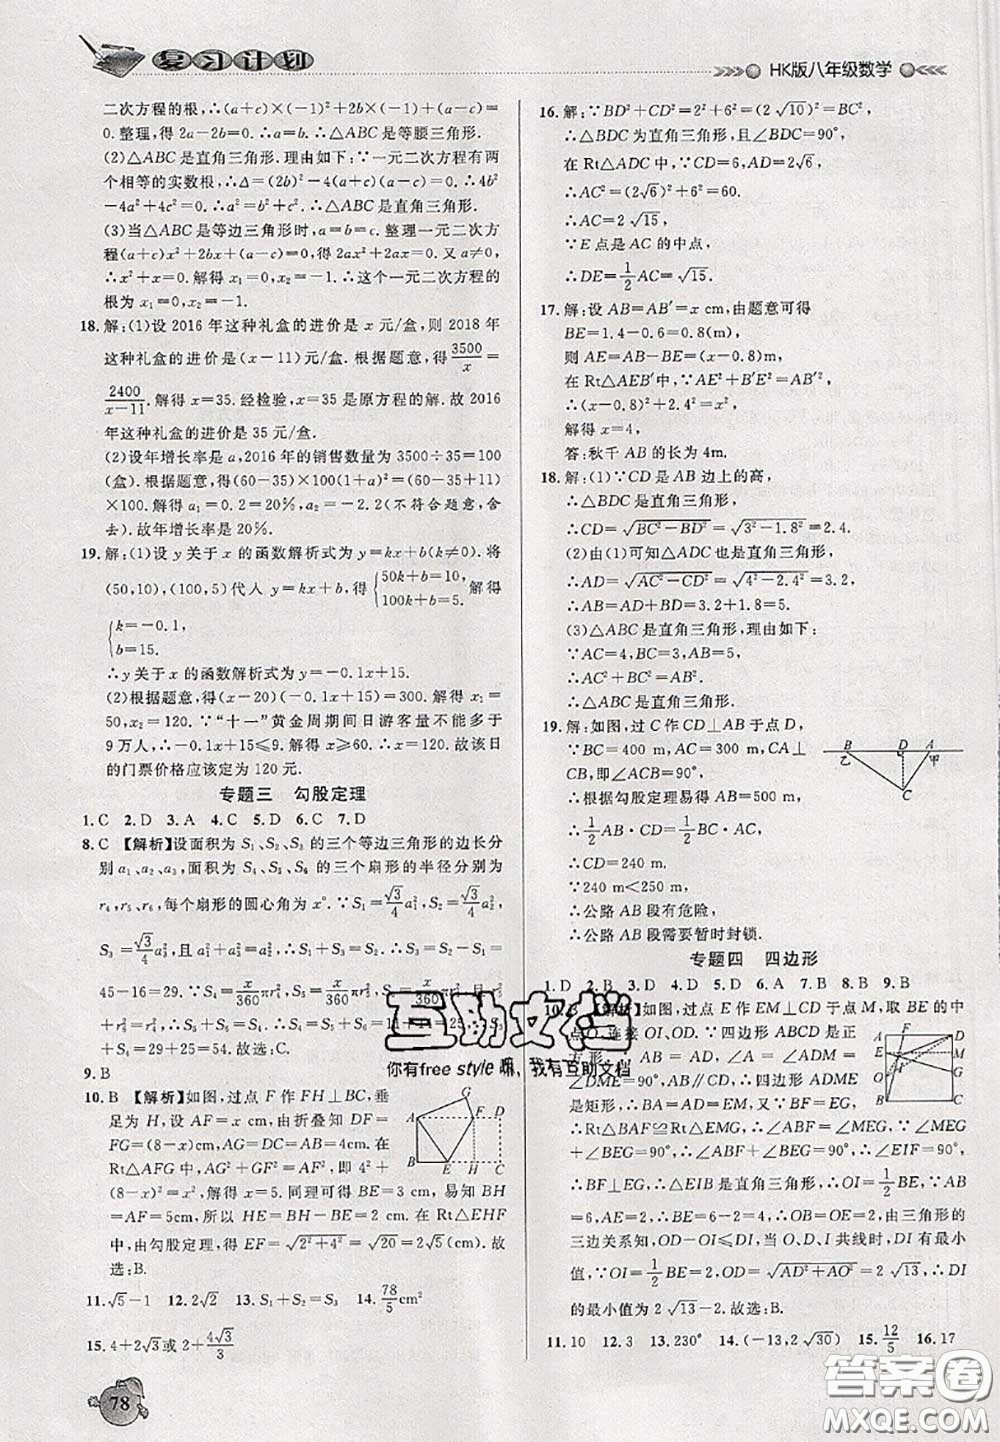 复习计划
HK版八年级数学
二次方程的根,∴(a+c)×(-1)²+2b×(-1)+(a-c)=
0.整理,得2a-2b=0.∴a=b.∴△ABC是等腰三角形.
(2)△ABC是直角三角形.理由如下:∵一元二次方程有两
个相等的实数根,∴Δ=(2b)²-4(a+c)(a-c)=0.∴4b²
-4a²+4c²=0.∴a²=b²+c².∴△ABC是直角三角形.
(3)当△ABC是等边三角形时,a=b=c.整理一元二次方
程(a+c)x²+2bx+(a-c)=0,得2ax²+2ax=0.又a≠
0,∴x²+x=0.解得x₁=0,x₂=-1.∴这个一元二次方程的
根为x₁=0,x₂=-1.
18.解:(1)设2016年这种礼盒的进价是x元/盒,则2018年
这种礼盒的进价是(x-11)元/盒.根据题意,得3500/x=
2400/(x-11).解得x=35.经检验,x=35是原方程的解.故2016
年这种礼盒的进价是35元/盒.
(2)设年增长率是a,2016年的销售数量为3500÷35=100
(盒).根据题意,得(60-35)×100(1+a)²=(60-35+11)
×100.解得a₁=0.2=20%,a₂=-2.2(不符合题意,舍
去).故年增长率是20%.
19.解:(1)设y关于x的函数解析式为y=kx+b(k≠0).将
(50,10),(100,5)代入y=kx+b,得{50k+b=10, 100k+b=5.
{k=-0.1, b=15.
∴y关于x的函数解析式为y=-0.1x+15.
(2)根据题意,得(x-20)(-0.1x+15)=300.解得x₁=
50,x₂=120.∵“十一”黄金周期间日游客量不能多于
9万人,∴-0.1x+15≤9.解得x≥60.∴x=120.故该日
的门票价格应该定为120元.
专题三 勾股定理
1.C 2.D 3.A 4.C 5.D 6.C 7.D
8.C 【解析】设面积为S₁、S₂、S₃的三个等边三角形的边长分
别a₁、a₂、a₃,面积为S₄、S₅、S₆的三个扇形的半径分别为
r₄,r₅,r₆,每个扇形的圆心角为x°.∵S₁=√3/4a₁²,S₂=√3/4a₂²,
S₃=√3/4a₃²,a₁²+a₃²=a₂²,∴S₁+S₃=S₂.∴S₃=S₂-S₁=
45-16=29.∵S₄=x/360πr₄²,S₅=x/360πr₅²,S₆=x/360πr₆²,且r₄²
+r₅²=r₆²,∴S₆=S₄+S₅=11+14=25.∴S₃
+S₆=29+25=54.故选:C.
9.B
10.B 【解析】如图,过点F作FH⊥BC,垂
足为H,设AF=x cm,由折叠知DF=
FG=(8-x)cm,AG=DC=AB=4cm.在
Rt△AFG中,AG²+GF²=AF²,即4²+
(8-x)²=x²,解得x=5.同理可得BE=3 cm,易知BH
=AF=5cm,所以HE=BH-BE=2 cm.在Rt△EHF
中,由勾股定理,得EF=√(2²+4²)=√20=2√5(cm).故
选:B.
G
A F D
B E H C
11.√5-1 12.2√2 13.S₁+S₂=S₃ 14.78/5cm²
15.4+2√3或2+4√3/3
16.解:∵BD²+CD²=2²+6²=(2√10)²=BC²,
∴△BDC为直角三角形,且∠BDC=90°,
在Rt△ADC中,∵CD=6,AD=2√6,
∴AC²=(2√6)²+6²=60.
∴AC=2√15,
∵E点是AC的中点,
∴DE=1/2AC=√15.
17.解:设AB=AB′=x cm,由题意可得
BE=1.4-0.6=0.8(m),
则AE=AB-BE=(x-0.8)m,
在Rt△AEB′中,∵AE²+B′E²=AB′²,
∴(x-0.8)²+2.4²=x²,
解得x=4,
答:秋千AB的长为4m.
18.解:(1)∵CD是AB边上的高,
∴△BDC是直角三角形,
∴CD=√(BC²-BD²)=√(3²-1.8²)=2.4.
(2)由(1)可知△ADC也是直角三角形,
∴AD=√(AC²-CD²)=√(4²-2.4²)=3.2,
∴AB=AD+BD=3.2+1.8=5.
(3)△ABC是直角三角形,理由如下:
∵AC=4,BC=3,AB=5,
∴AC²+BC²=AB².
∴△ABC是直角三角形.
19.解:如图,过C作CD⊥AB于点D,
∵BC=400 m,AC=300 m,CA⊥
CB,即∠ACB=90°,
∴根据勾股定理易得AB=500 m,
∴1/2AB·CD=1/2BC·AC,
∴CD=240 m.
∵240 m<250 m,
∴公路AB段有危险,
∴公路AB段需要暂时封锁.
B D A
乙 甲
C
专题四 四边形
1.D 2.B 3.D 4.D 5.C 6.A 7.B 8.B 9.B
10.B 【解析】如图,过点E作EM⊥CD于点M,取BE的中
点O,连接OI、OD.∵四边形ABCD是正
方形,
∠DME=90°,∴四边形ADME
是矩形,∴BA=AD=EM,∵BF=EG,
∴Rt△BAF≌Rt△EMG,∴∠ABF=∠MEG,∵∠MEG
+∠BEG=90°,∴∠ABF+∠BEG=90°,∴∠EIF=90°,
∴BF⊥EG,∴△EIB是直角三角形,∴OI=1/2BE,∵AB
=6,AE=2,∴BE=6-2=4,OB=OE=2,由三角形的
三边关系知,OD-OI≤DI,当O、D、I共线时,DI有最小
值,∵OI=1/2BE=2,OD=√(AD²+AO²)=2√13,∴DI
的最小值为2√13-2.故选:B.
11.10 12.3 13.230° 14.(-13,2√30) 15.12/5 16.17
互助文档
你有free style嘛,我有互助文档
答案圈
MXQE.COM
78